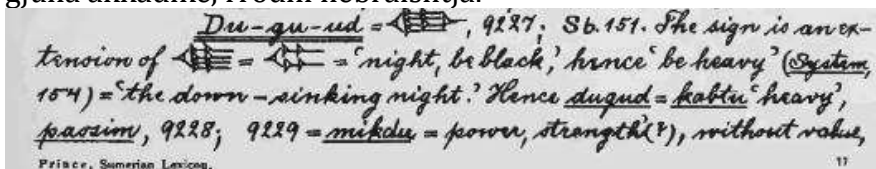 Du-gu-ud = , 9227; Sb. 151. The sign is an ex-
tension of = = 'night, be black,' hence 'be heavy' (System,
154) = 'the down-sinking night.' Hence dugud = kabtu 'heavy',
passim, 9228; 9229 = mikdu = power, strength(?), without value,
Prince, Sumerian Lexicon. 11